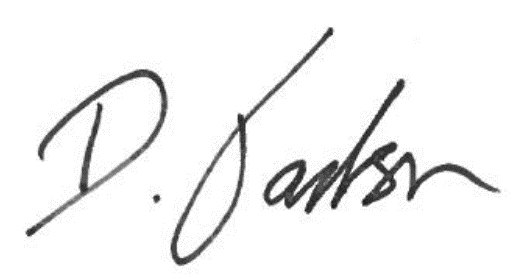 D. Jackson